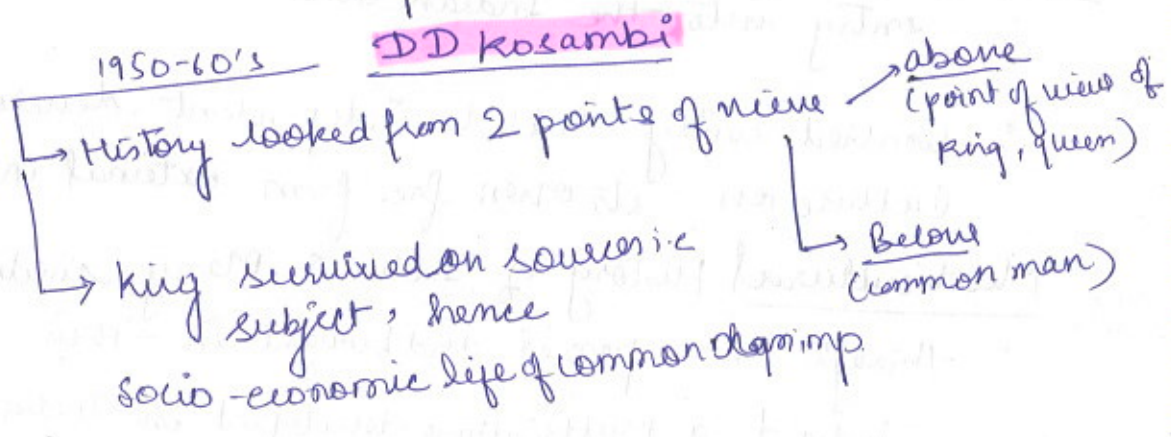 DD Kosambi
1950-60's
History looked from 2 points of view
above
(point of view of
King, queen)
Below
(common man)
King survived on sources i.e
subject, hence
Socio-economic life of common man imp.